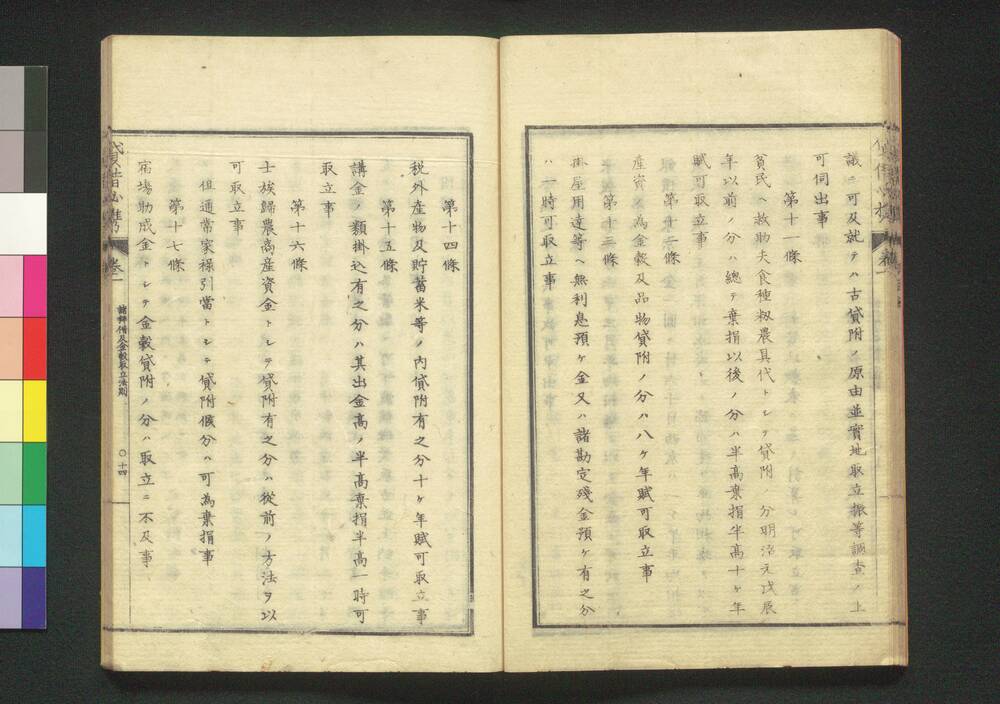 議ニ可及就テハ古貸附ノ原由並實地取立振等調査ノ上
可伺出事
第十一條
貧民ヘ救助夫食種籾農具代トシテ貸附ノ分明治元戊辰
年以前ノ分ハ總テ棄捐以後ノ分ハ半高棄捐半高十ヶ年
賦可取立事
第十二條
産資ノ為金穀及品物貸附ノ分ハ八ヶ年賦可取立事
第十三條
掛屋用達等ヘ無利息預ヶ金又ハ諸勘定殘金預ヶ有之分
ハ一時可取立事
第十四條
税外産物及貯蓄米等ノ内貸附有之分十ヶ年賦可取立事
第十五條
講金ノ類掛込有之分ハ其出金高ノ半高棄捐半高一時可
取立事
第十六條
士族歸農商産資金トシテ貸附有之分ハ從前ノ方法ヲ以
可取立事
但通常家祿引當トシテ貸附候分ハ可為棄捐事
第十七條
宿場助成金トシテ金穀貸附ノ分ハ取立ニ不及事
卷二
諸拜借及金穀取立法則
〇十四